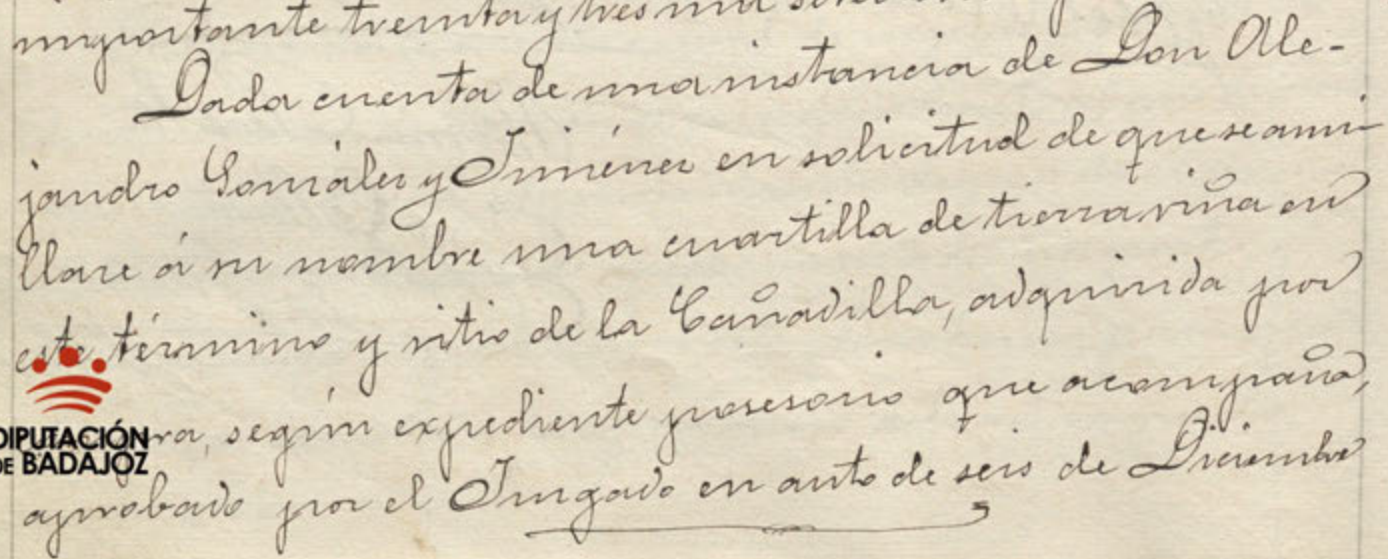 importante treinta y tres mil
Dada cuenta de una instancia de Don Ale-
jandro González y Jiménez en solicitud de que se ami-
llare á su nombre una cuartilla de tierra viña en
este término y sitio de la Cañadilla, adquirida por
ra, según expediente posesorio que acompaña,
aprobado por el Juzgado en auto de seis de Diciembre
DIPUTACIÓN
DE BADAJOZ